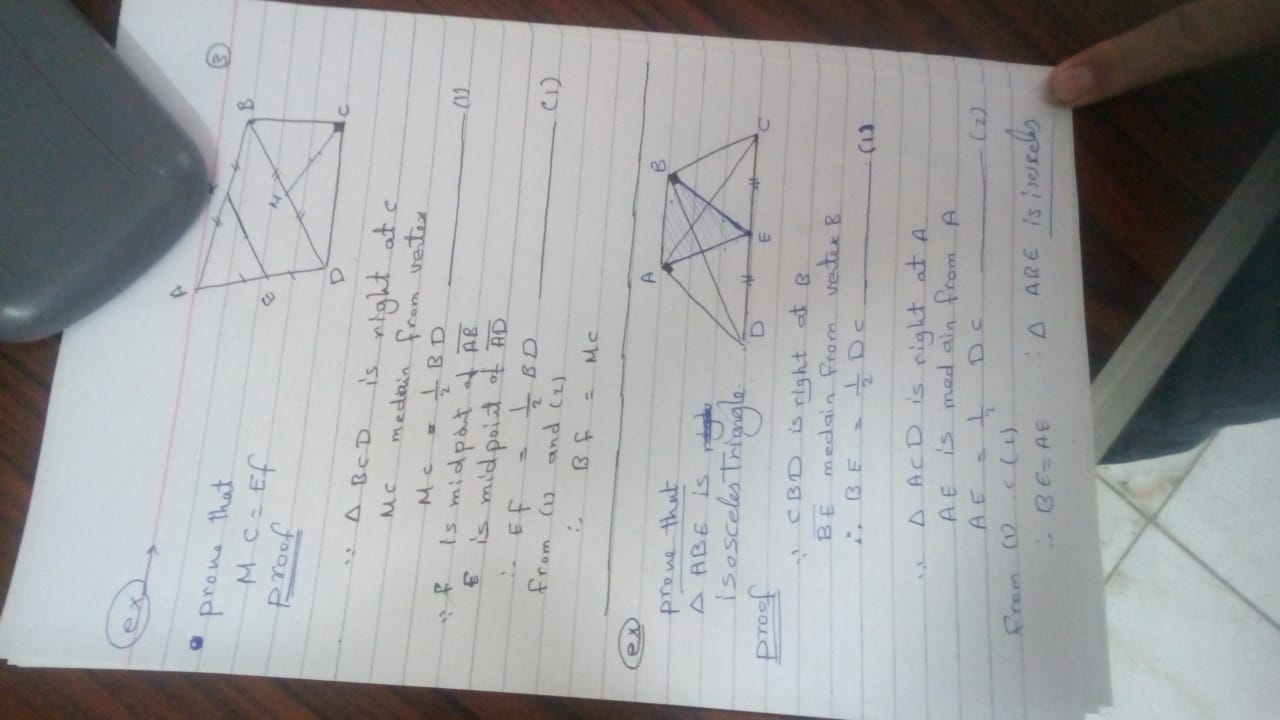 3
ex
• prove that
M C = Ef
proof
A
B
M
E
D
C
∵ Δ BCD is right at C
MC medain from vertex
MC = 1/2 BD ——— (1)
∵ F is midpoint of AB
E is midpoint of AD
∴ EF = 1/2 BD ——— (1)
from (1) and (2)
∴ Bf = MC
ex
prove that
Δ ABE is
isosceles Triangle.
proof
A
B
D
E
C
∵ CBD is right at B
BE medain from vertex B
∴ BE = 1/2 DC ——— (1)
∵ Δ ACD is right at A
AE is medain from A
AE = 1/2 DC ——— (2)
from (1) (2)
∴ BE = AE ∴ Δ ABE is isoscels